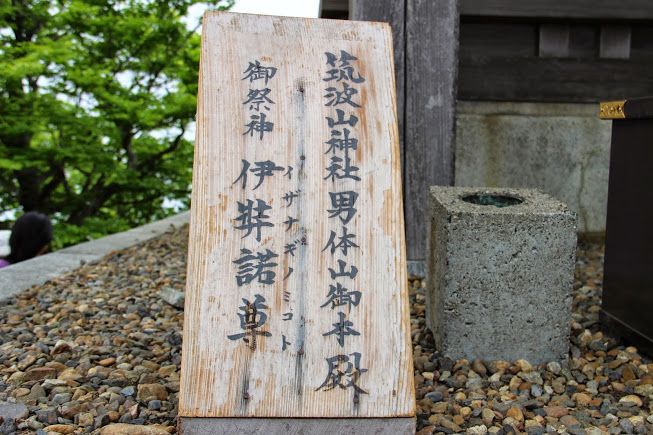 筑波山神社男体山御本殿
御祭神 伊弉諾尊
イザナギノミコト